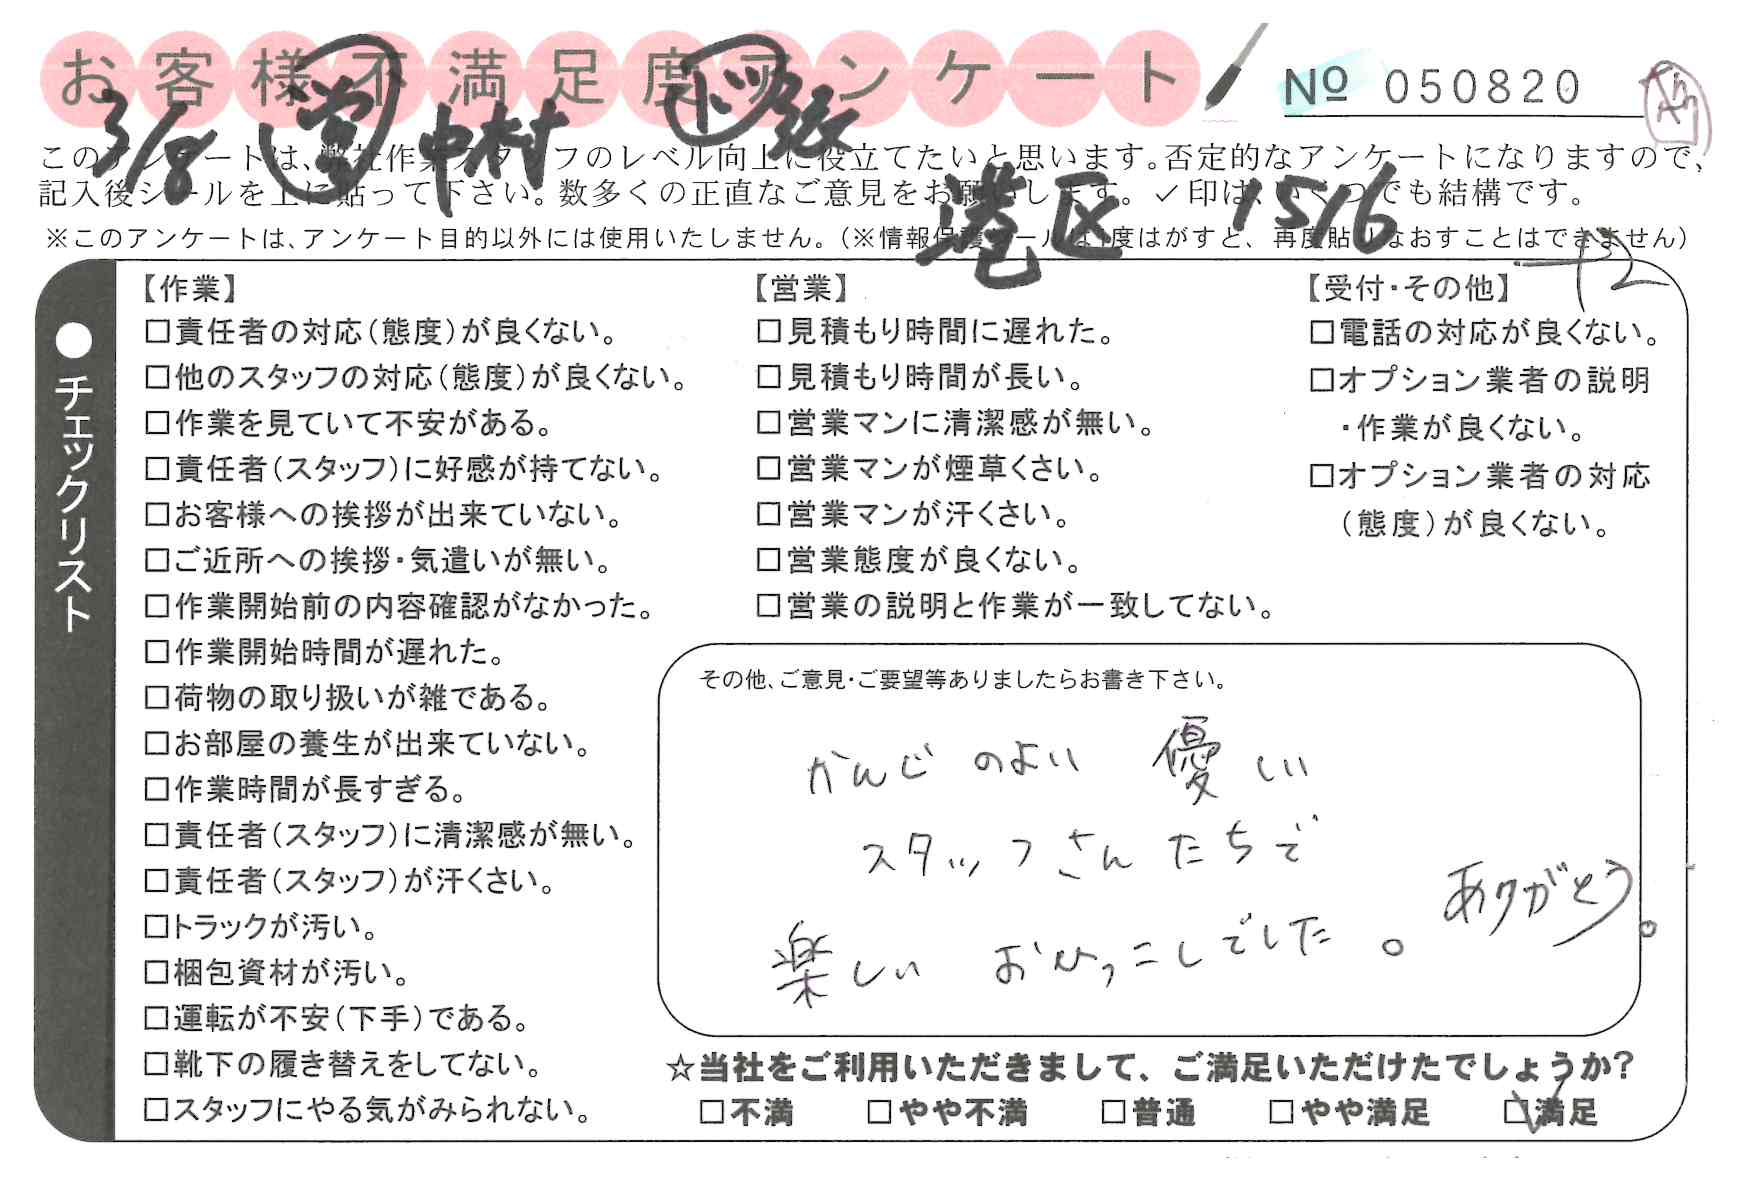 お客様不満足度アンケート
№ 050820
3/8 営 中村
港区 1516
このアンケートは、弊社作業スタッフのレベル向上に役立てたいと思います。否定的なアンケートになりますので、
記入後シールを上に貼って下さい。数多くの正直なご意見をお願いします。✓印は、いくつでも結構です。
※このアンケートは、アンケート目的以外には使用いたしません。(※情報保護シールは1度はがすと、再度貼りなおすことはできません)
●チェックリスト
【作業】
□責任者の対応(態度)が良くない。
□他のスタッフの対応(態度)が良くない。
□作業を見ていて不安がある。
□責任者(スタッフ)に好感が持てない。
□お客様への挨拶が出来ていない。
□ご近所への挨拶・気遣いが無い。
□作業開始前の内容確認がなかった。
□作業開始時間が遅れた。
□荷物の取り扱いが雑である。
□お部屋の養生が出来ていない。
□作業時間が長すぎる。
□責任者(スタッフ)に清潔感が無い。
□責任者(スタッフ)が汗くさい。
□トラックが汚い。
□梱包資材が汚い。
□運転が不安(下手)である。
□靴下の履き替えをしてない。
□スタッフにやる気がみられない。
【営業】
□見積もり時間に遅れた。
□見積もり時間が長い。
□営業マンに清潔感が無い。
□営業マンが煙草くさい。
□営業マンが汗くさい。
□営業態度が良くない。
□営業の説明と作業が一致してない。
【受付・その他】
□電話の対応が良くない。
□オプション業者の説明
・作業が良くない。
□オプション業者の対応
(態度)が良くない。
その他、ご意見・ご要望等ありましたらお書き下さい。
かんじのよい 優しい
スタッフさんたちで
楽しい おひっこしでした。
ありがとう。
☆当社をご利用いただきまして、ご満足いただけたでしょうか?
□不満 □やや不満 □普通 □やや満足 ☑満足